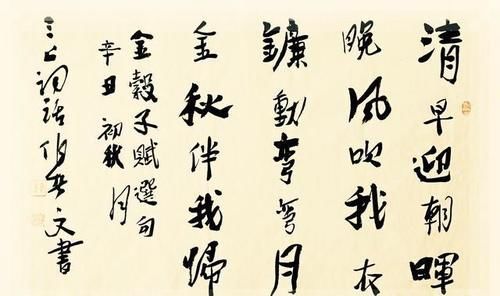 清早迎朝暉
晚风吹我衣
鐮動彎彎月
金秋伴我歸
金穀子賦選句
辛丑 初秋 月
詞話 文書